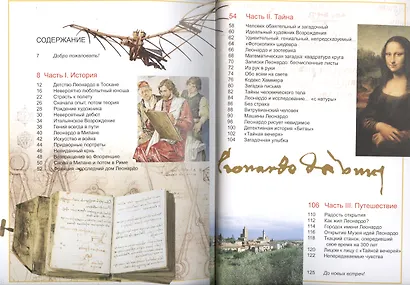 СОДЕРЖАНИЕ
7 Добро пожаловать!
8 Часть I. История
12 Детство Леонардо в Тоскане
16 Невероятно любопытный юноша
18 Страсть к полету
26 Сначала опыт, потом теория
28 Рождение художника
30 Невероятный дебют
34 Итальянское Возрождение
38 Гений всегда в пути
40 Леонардо в Милане
42 Искусство и война
44 Придворные портреты
46 Невиданный конь
48 Возвращение во Флоренцию
50 Снова в Милане и потом в Риме
52 Франция – последний дом Леонардо
54 Часть II. Тайна
58 Человек обаятельный и загадочный
60 Идеальный художник Возрождения
62 Удивительный, гениальный, непредсказуемый...
64 «Фотокопия» шедевра
66 Леонардо и птица
68 Леонардо вегетарианец
68 Математическая загадка: квадратура круга
70 Записки Леонардо: бесчисленные листы
72 Из рук в руки
74 Обо всем на свете
76 Кодекс Хаммера
80 Загадка письма
82 Тайны человеческого тела
84 Леонардо и исследование... «с натуры»
86 Без страха
88 Витрувианский человек
90 Машины Леонардо
96 Леонардо рисует невидимое
100 Детективная история «Битвы»
102 «Тайная вечеря»
104 Загадочная улыбка
106 Часть III. Путешествие
110 Радость открытия
112 Как жил Леонардо?
114 Города имени Леонардо
116 Открытие Музея идей Леонардо
118 Ткацкий станок, опередивший
свое время на 300 лет
120 Лицом к лицу с «Тайной вечерей»
122 Непередаваемые чувства
125 До новых встреч!